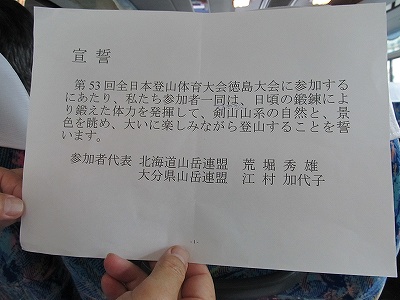 宣誓
第53回全日本登山体育大会徳島大会に参加する
にあたり、私たち参加者一同は、日頃の鍛錬によ
り鍛えた体力を発揮して、剣山山系の自然と、景
色を眺め、大いに楽しみながら登山することを誓
います。
参加者代表 北海道山岳連盟 荒堀秀雄
大分県山岳連盟 江村加代子
-1-